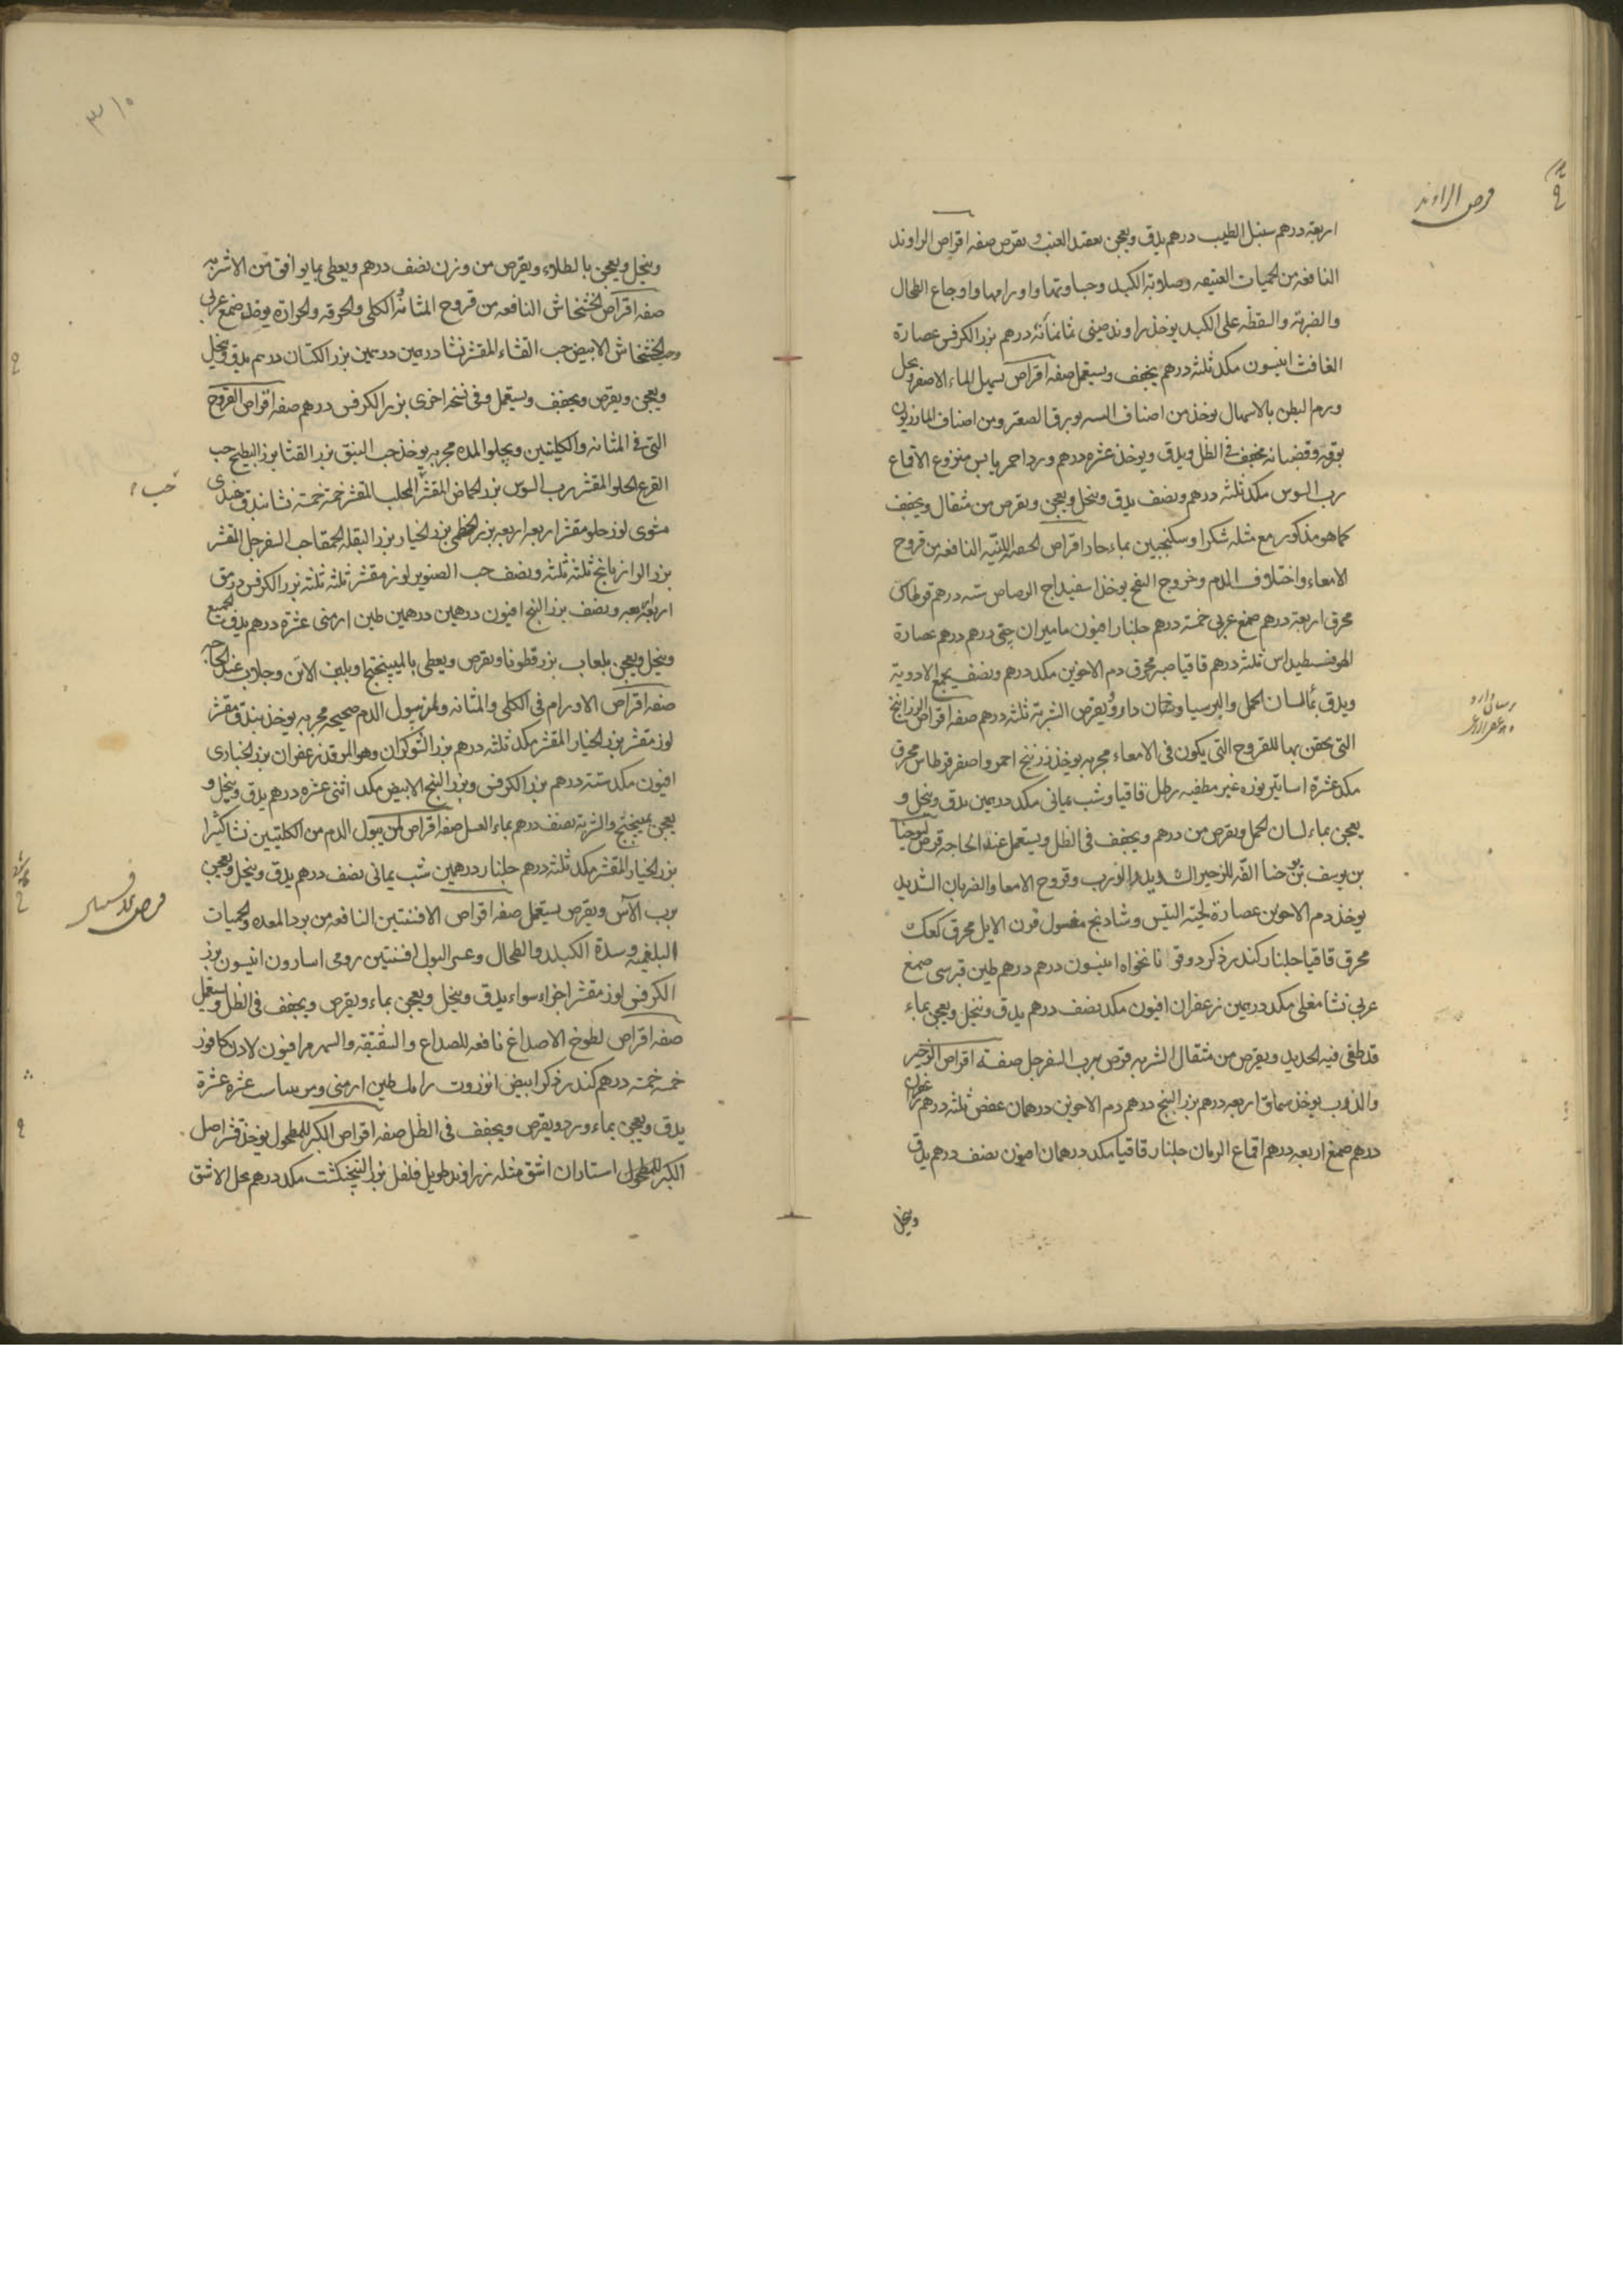 قرص الراوند
اربعة درهم سنبل الطيب درهم يدق ويعجن بعقيد العنب و يقرص صفه اقراص الراوند
النافعه من الحميات العتيقه وصلابة الكبد وجساوتها واورامها واوجاع الطحال
والضربة والسقطه على الكبد يوخذ راوند صينى ثمانمائة درهم بزر الكرفس عصارة
الغافث انيسون مكد ثلثة درهم يجفف ويستعمل صفه اقراص يسهل الماء الاصفر ويحل
ورم البطن بالاسهال يوخذ من اصناف ورق الصعتر ومن اصناف المازريون
بورقه وقضبانه يجفف فى الظل ويدق ويوخذ عشره درهم ورد احمر يابس منزوع الاقماع
رب السوس مكد ثلثه درهم ونصف يدق وينخل ويعجن ويقرص من مثقال ويجفف
كما هو مذكور مع مثله شكرا وسكنجبين بماء حار اقراص النافعه من قروح
الامعاء واختلاف الدم وخروج القيح يوخذ اسفيداج الرصاص سته درهم قرطاس
محرق اربعة درهم صمغ عربى خمسة درهم جلنار افيون ماميران چينى درهم درهم عصارة
الهوفسطيداس ثلثه درهم قاقيا محرق دم الاخوين مكد درهم ونصف يجمع الادوية
ويدق بماء لسان الحمل والپرسيا وشان دارو ويقرص الشربة ثلثه درهم صفه اقراص الزرانيخ
التى يحقن بها للقروح التى يكون فى الامعاء مجربه يوخذ زرنيخ احمر واصفر قرطاس محرق
مكد عشرة اساتير نوره غير مطفيه رطل قاقيا وشب يمانى مكد درهمين يدق وينخل و
يعجن بماء لسان الحمل ويقرص من درهم ويجفف فى الظل ويستعمل عند الحاجه قرص ليوحنا
بن يوسف للزحير الشديد والذرب وقروح الامعا والضربان الشديد
يوخذ دم الاخوين عصارة لحية التيس وشادنج مغسول قرن الايل محرق كعك
محرق قاقيا جلنار كندر ذكر دوقو نانخواه انيسون درهم درهم طين قبرسى صمغ
عربى نشا مغلى مكد درهمين زعفران افيون مكد نصف درهم يدق وينخل ويعجن بماء
قد طفى فيه الحديد ويقرص من مثقال الشربه قرص برب السفرجل صفة اقراص الزحير
والذرب يوخذ سماق اربعه درهم بزر البنج درهم دم الاخوين درهمان عفص ثلثه درهم زعفران
درهم صمغ اربعه درهم اقماع الرمان جلنار قاقيا مكد درهمان افيون نصف درهم يدق
وينخل
٣١٥
وينخل ويعجن بالطلاء ويقرص من وزن نصف درهم ويعطى بما يوافق من الاشربه
صفه اقراص الخشخاش النافعه من قروح المثانة والكلى والحرقه والحرارة يوخذ صمغ عربى
وحب الخشخاش الابيض حب القثاء المقشر نشا درهمين درهمين بزر الكتان درهم يدق وينخل
ويعجن ويقرص ويجفف ويستعمل وفى نسخه اخرى بزر الكرفس درهم صفه اقراص القروح
التى فى المثانه والكليتين ويجلو المده مجربه يوخذ حب البنق بزر القثا بزر البطيخ حب
القرع الحلو المقشر رب السوس بزر الحماض المقشر المحلب المقشر خمسة خمسة نشا بندق هندى
مشوى لوز حلو مقشر اربعه اربعه بزر الخطمى بزر الخيار بزر البقله الحمقا حب السفرجل المقشر
بزر الرازيانج ثلثه ثلثه ونصف حب الصنوبر لوز مقشر ثلثه ثلثه بزر الكرفس
اربعه ونصف بزر البنج افيون درهمين درهمين طين ارمنى عشرة درهم يدق الجميع
وينخل ويعجن بلعاب بزر قطونا ويقرص ويعطى بالميبختج او بلبن الاتن وجلاب عند الحاجه
صفه اقراص الاورام فى الكلى والمثانه ولمن يبول الدم صحيحه مجربه يوخذ بندق مقشر
لوز مقشر بزر الخيار المقشر مكد ثلثه درهم بزر الشوكران وهو المرقد زعفران بزر الخبازى
افيون مكد ستة درهم بزر الكرفس وبزر البنج الابيض مكد اثنى عشره درهم يدق وينخل و
يعجن بميبختج والشربة نصف درهم بماء العسل صفه اقراص لمن يبول الدم من الكليتين نشا كثيرا
بزر الخيار المقشر مكد ثلثه درهم جلنار درهمين شب يمانى نصف درهم يدق وينخل ويعجن
برب الآس ويقرص يستعمل صفه اقراص الافسنتين النافعه من برد المعده والحميات
البلغميه وسدة الكبد والطحال وعسر البول افسنتين رومى اسارون انيسون بزر
الكرفس لوز مقشر اجزاء سواء يدق وينخل ويعجن بماء ويقرص ويجفف فى الظل ويستعمل
صفه اقراص لطوخ الاصداغ نافعه للصداع والشقيقه والسهر مر افيون لادن كافور
خمسه خمسة درهم كندر ذكر ابيض انزروت رامك طين ارمنى عشرة عشرة
يدق ويعجن بماء ورد ويقرص ويجفف فى الظل صفه اقراص الكبر للمطحول يوخذ قشر اصل
الكبر للمطحول استاران اشق مثله زراوند طويل فلفل بزر البنجنكشت مكد درهم يحل الاشق